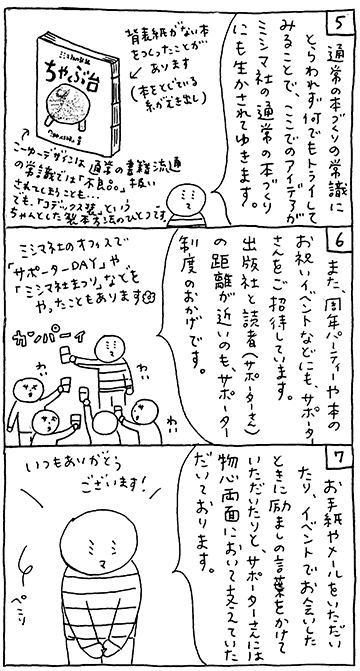 5
通常の本づくりの常識に
とらわれず何でもトライして
みることで、ここでのアイデアが
ミシマ社の通常の本づくり
にも生かされてゆきます。
背表紙がない本
をつくったことが
あります
(本をとじている
糸がむき出し)
ちゃぶ台
こーゆーデザインは通常の書籍流通
の常識では「不良品」扱い
されてしまうことも…
でも、「コデックス装」という
ちゃんとした製本方法のひとつです。
6
また、周年パーティーや本の
お祝いイベントなどにも、サポーター
さんをご招待しています。
出版社と読者(サポーターさん)
の距離が近いのも、サポーター
制度のおかげです。
ミシマ社のオフィスで
「サポーターDAY」や
「ミシマ社まつり」などを
やったこともあります
カンパーイ
わい
わい
わい
7
お手紙やメールをいただい
たり、イベントでお会いした
ときに励ましの言葉をかけて
いただいたりと、サポーターさんには
物心両面において支えていた
だいております。
いつもありがとう
ございます!
ペこり